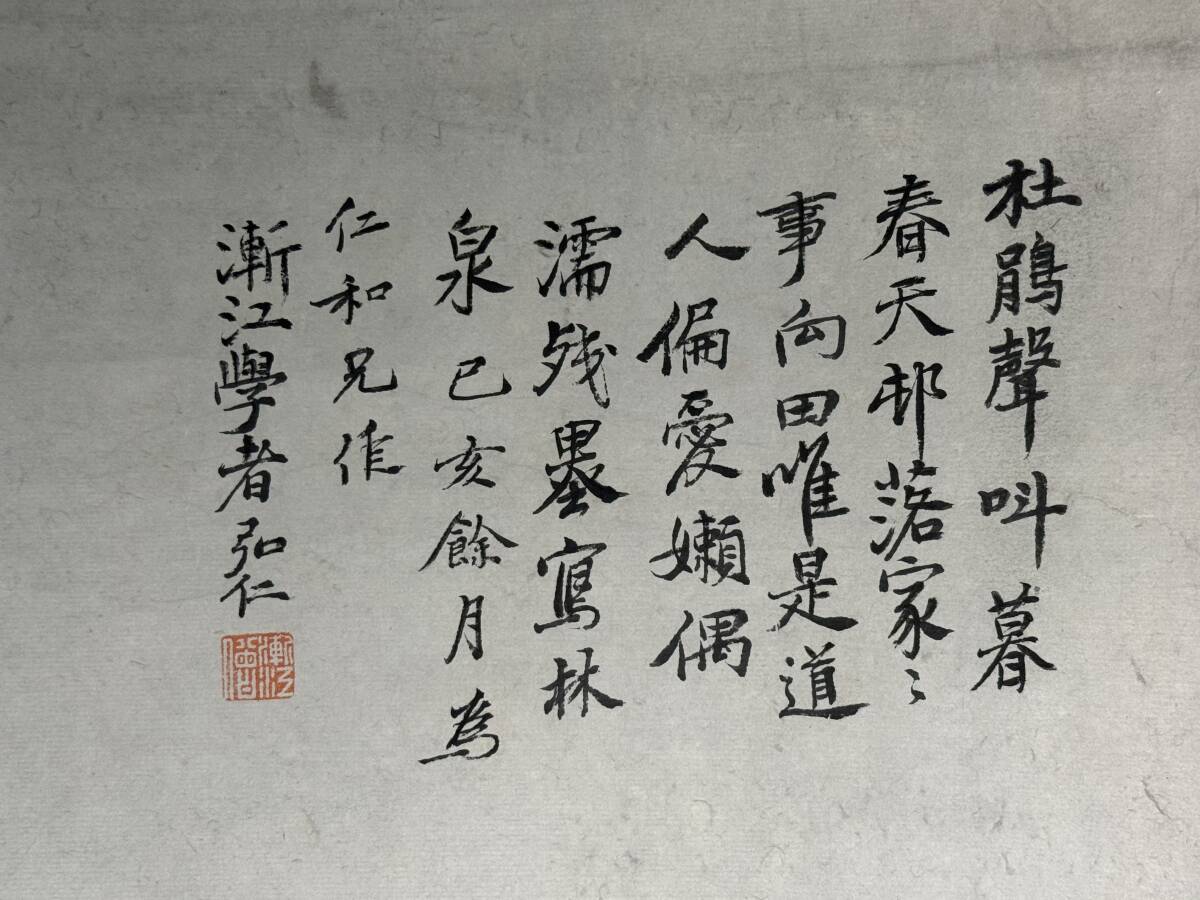 杜鵑聲呌暮
春天邨落家〻
事向田唯是道
人偏愛嬾偶
濡残墨寫林
泉 己亥餘月為
仁和兄作
漸江學者弘仁
漸江